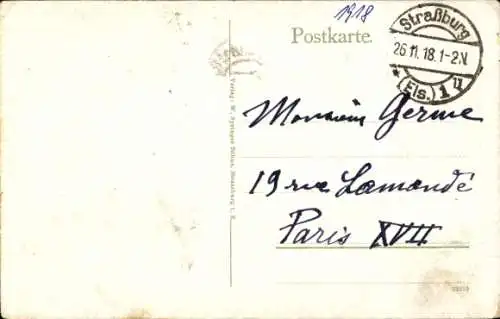 1918
Postkarte.
Straßburg
26.11.18.1-2N.
* (Els.) 1 u
Monsieur Germe
19 rue Lamandé
Paris XVII